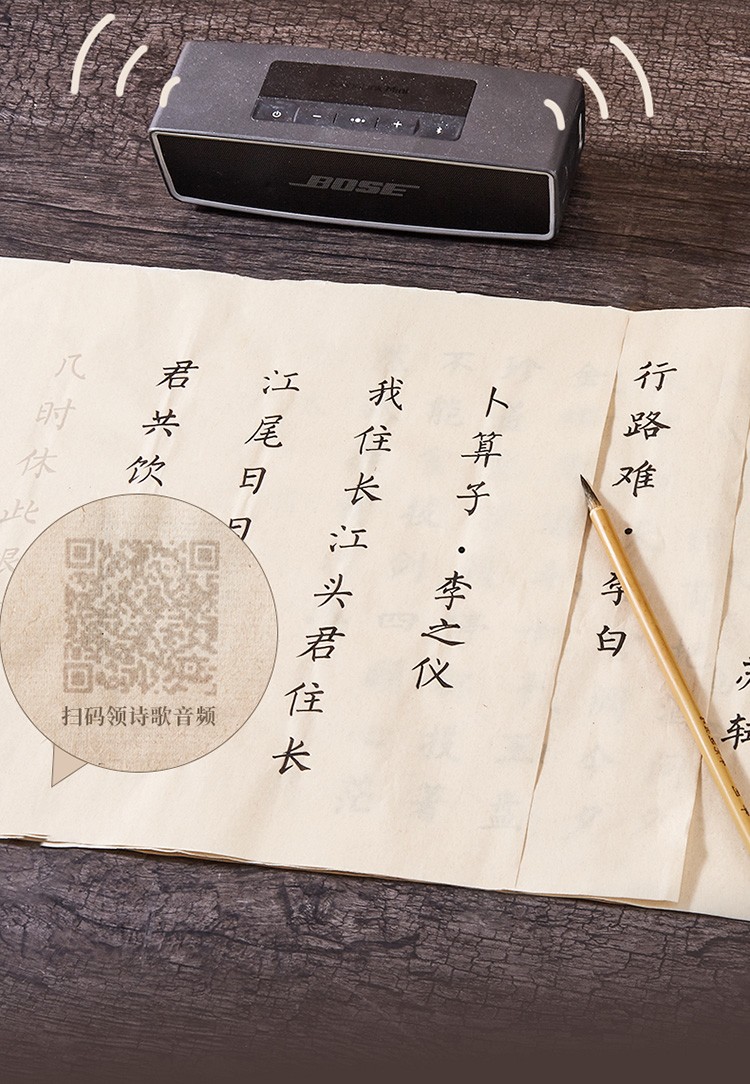 BOSE
行路难·李白
卜算子·李之仪
我住长江头君住长
江尾日日
君共饮
几时休此
扫码领诗歌音频